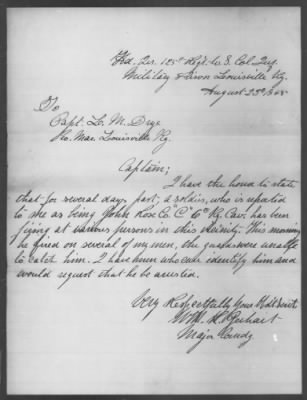 Hd. Qrs. 125th Regt. U.S. Col. Inf.
Military Prison Louisville Ky.
August 25th 1865
To
Capt. L. M. Drye
Pro. Mar. Louisville Ky.
Captain;
I have the honor to state
that for several days past; a soldier, who is reported
to me as being John Rose Co "C" 6th Ky. Cav. has been
firing at various persons in this vicinity. This morning
he fired on several of my men, the guards were unable
to catch him. I have men who can identify him and
would request that he be arrested.
Very Respectfully Your Obdt Servt
Wm. H.
Major Comdg